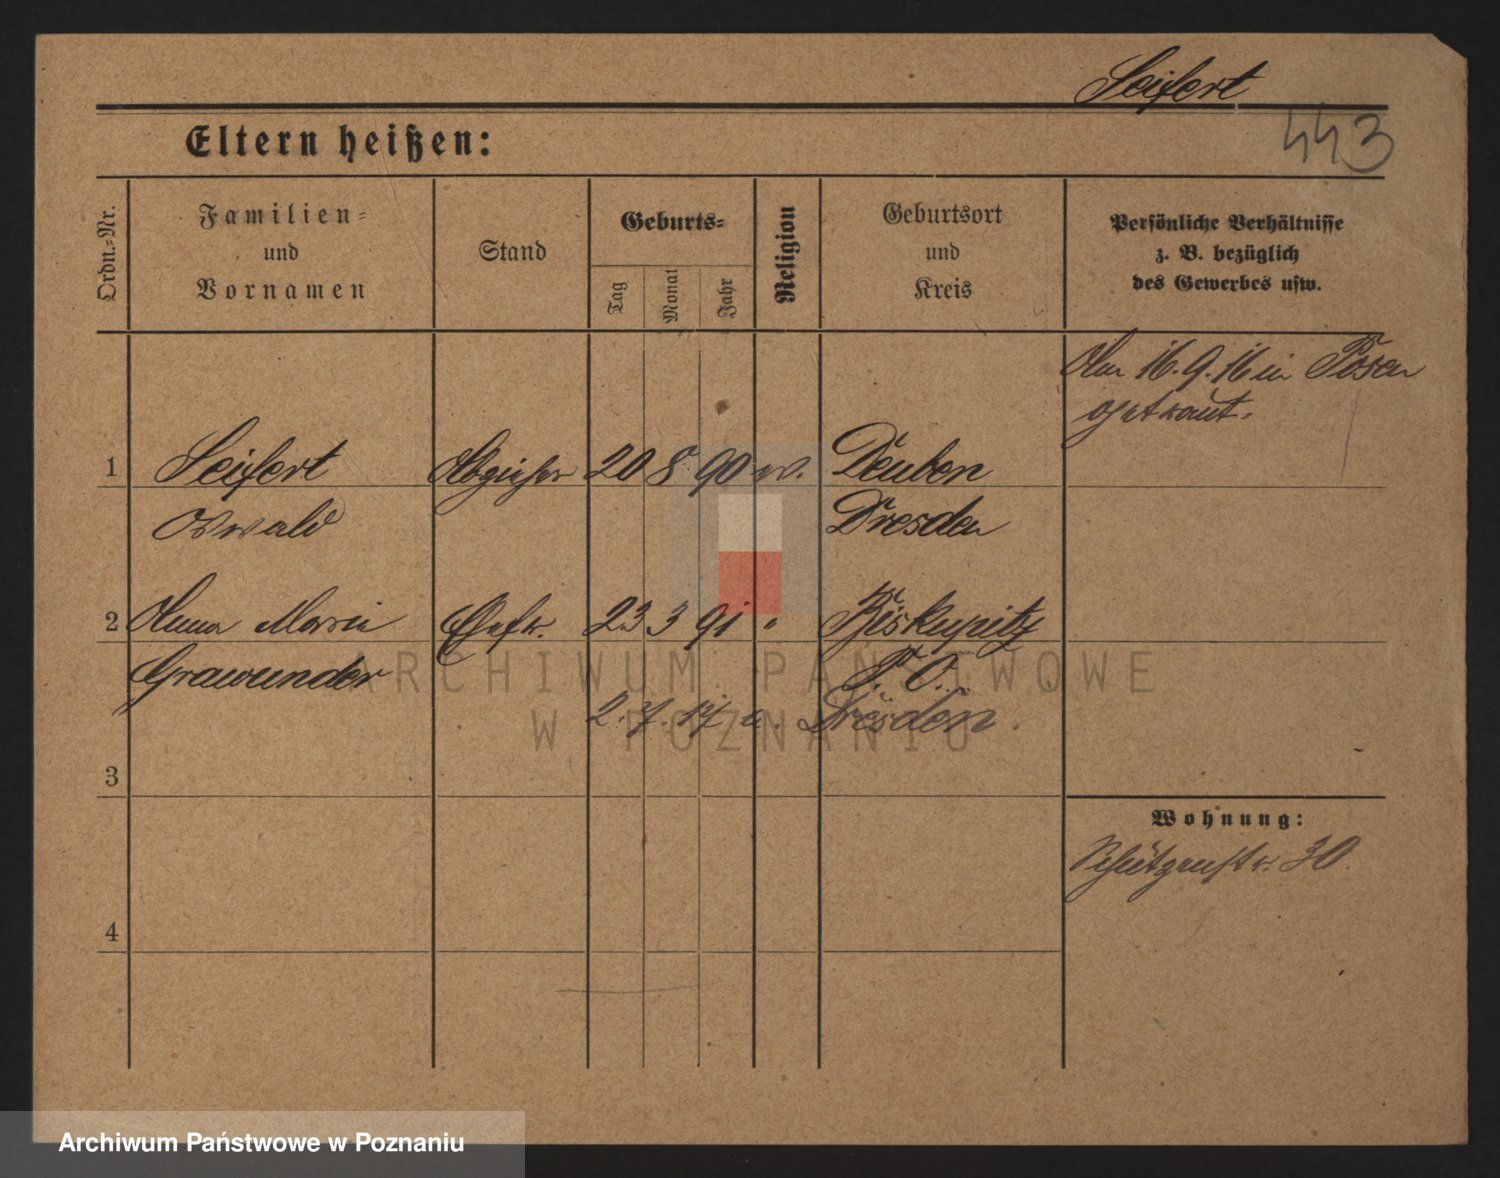 Seifert
443
Eltern heißen:
Ordn.=Nr.
Familien=
und
Vornamen
Stand
Geburts=
Tag
Monat
Jahr
Religion
Geburtsort
und
Kreis
Persönliche Verhältnisse
z. B. bezüglich
des Gewerbes usw.
Am 16.9.16 in Posen
getraut.
1 Seifert 20 8 90 ev. Deuben
Oswald Dresden
2 Anna Marie Ehefr. 23 3 91 " Biskupitz
Grawunder P. O.
2. 7. 17 n. Dresden.
3
Wohnung:
Schützenstr. 30.
4
ARCHIWUM PAŃSTWOWE
W POZNANIU
Archiwum Państwowe w Poznaniu